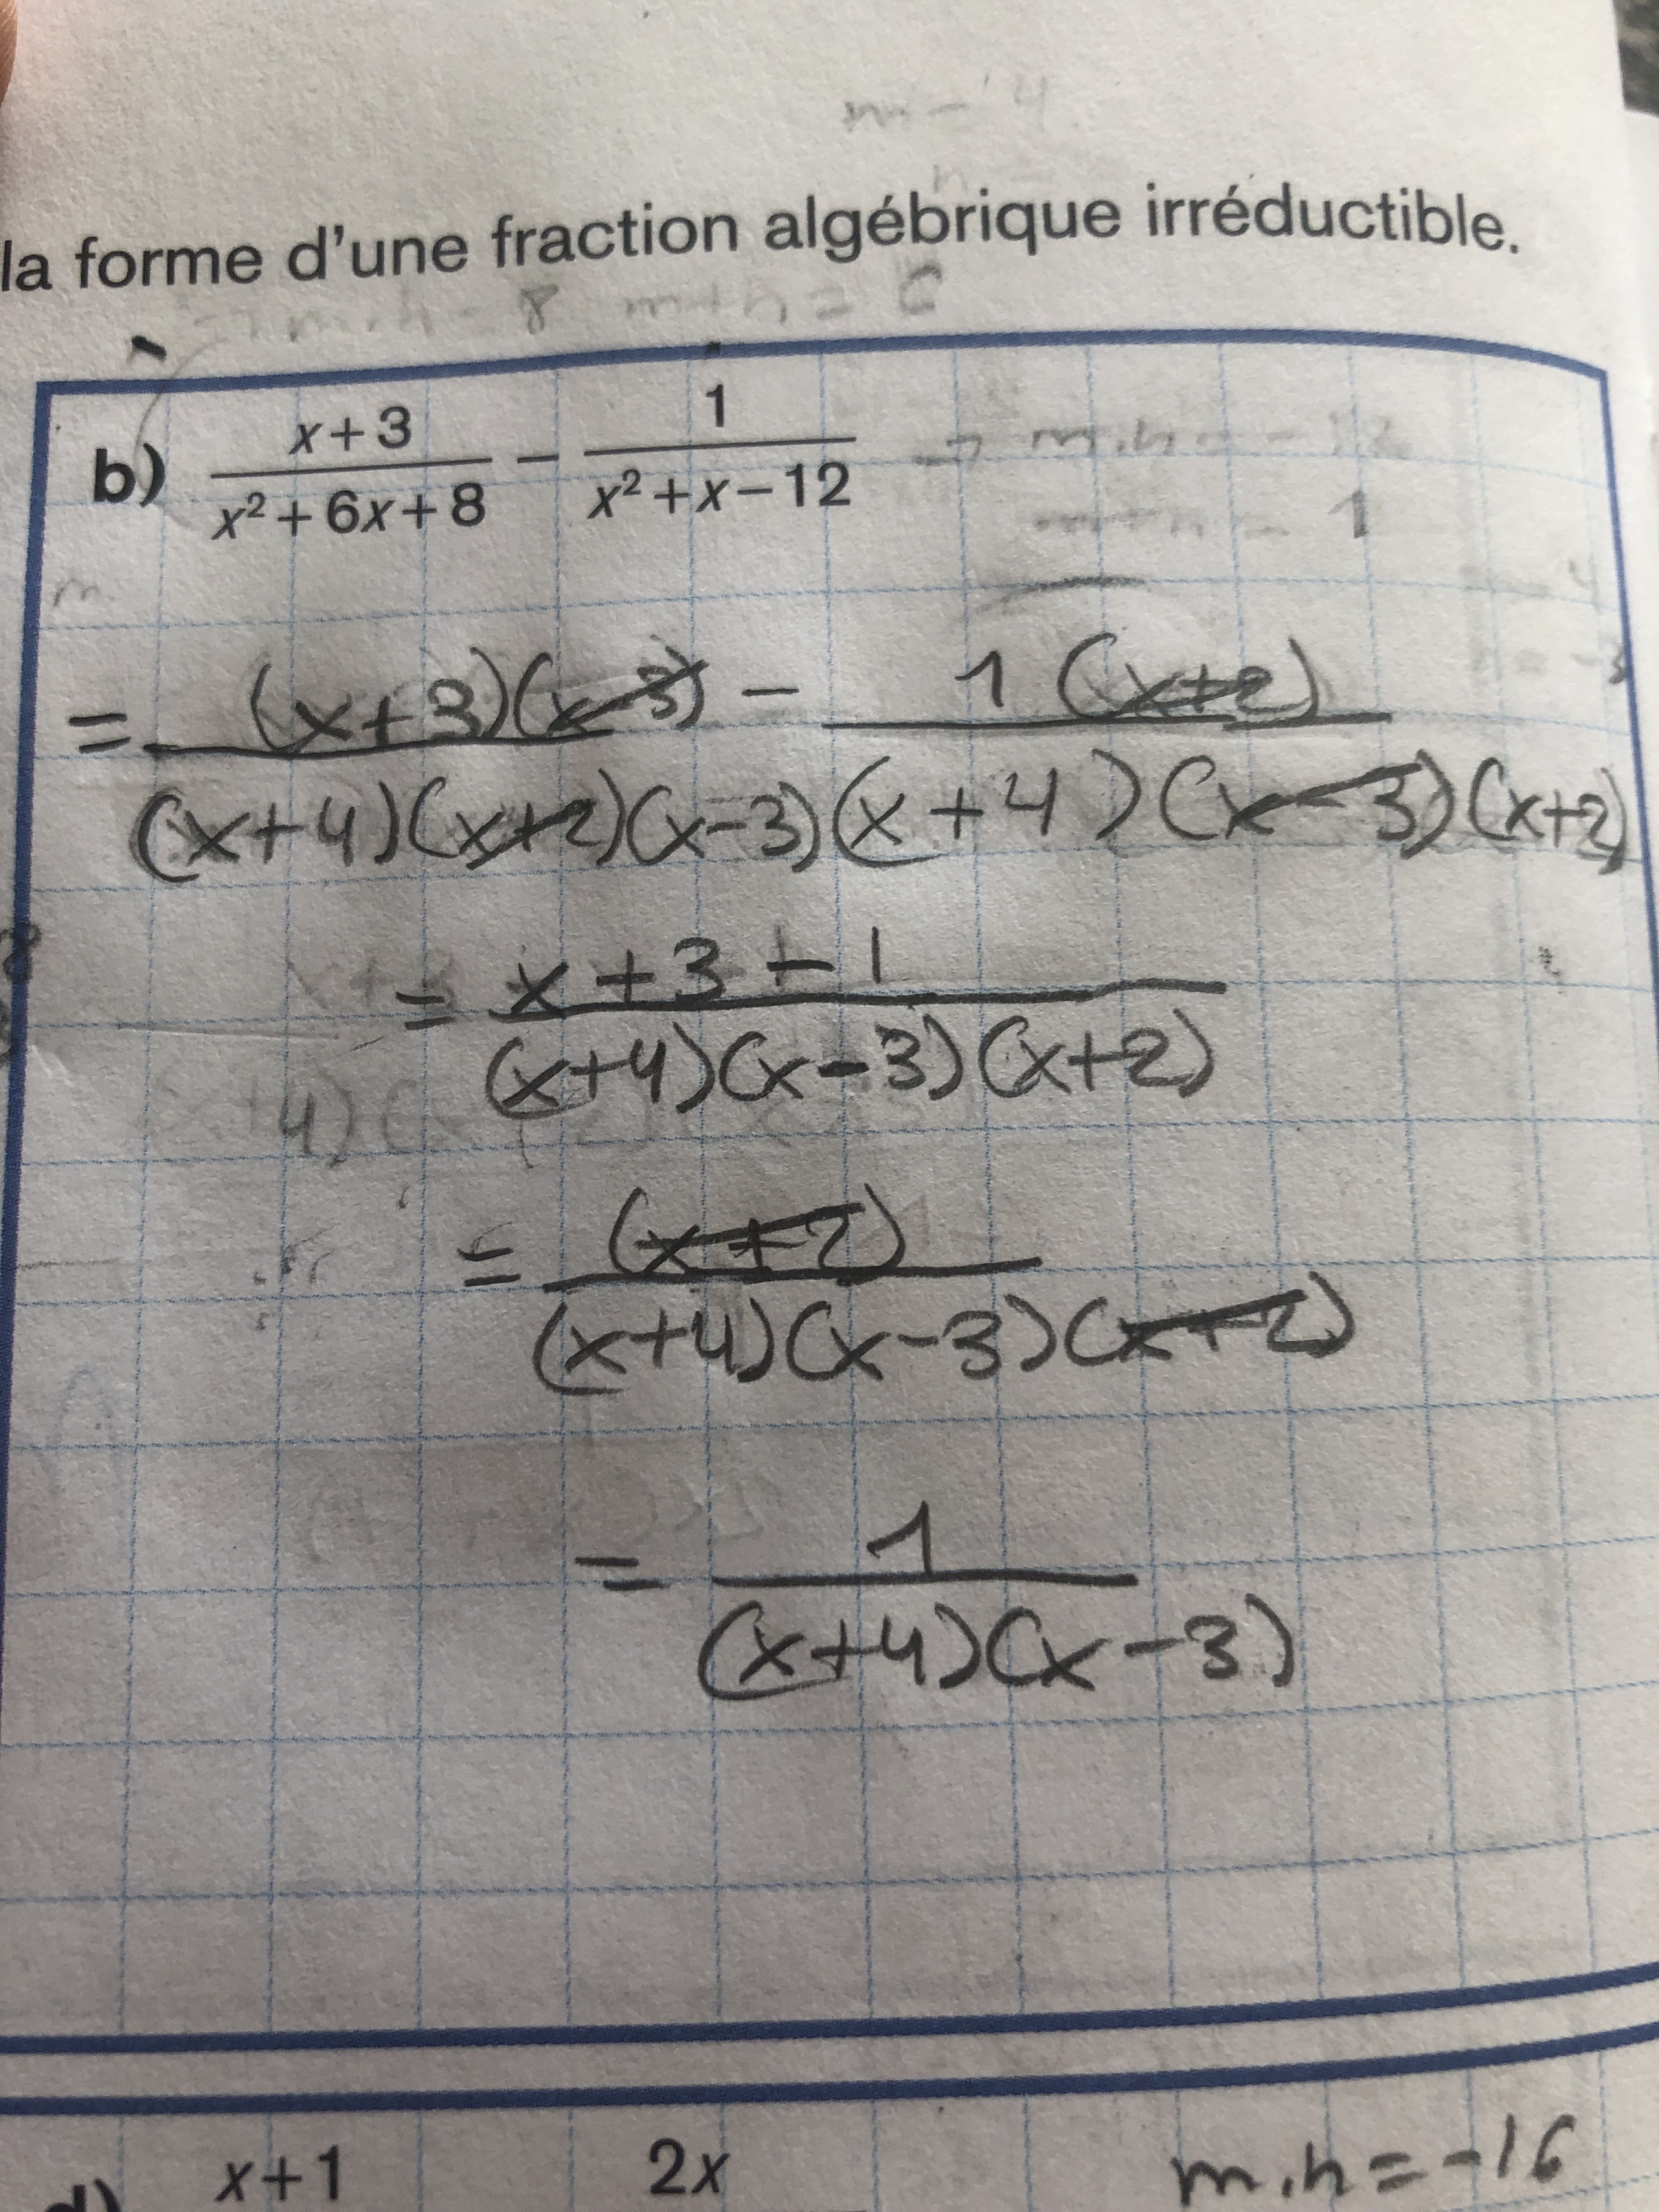 m = 4
la forme d'une fraction algébrique irréductible.
m.n = 8 m+n = 6
b) x+3 / x²+6x+8 − 1 / x²+x−12 → m.n = -12
m+n = 1
= (x+3)(x-3) / (x+4)(x+2)(x-3) − 1(x+2) / (x+4)(x-3)(x+2)
= x+3-1 / (x+4)(x-3)(x+2)
= (x+2) / (x+4)(x-3)(x+2)
= 1 / (x+4)(x-3)
d) x+1 2x m.n = -16